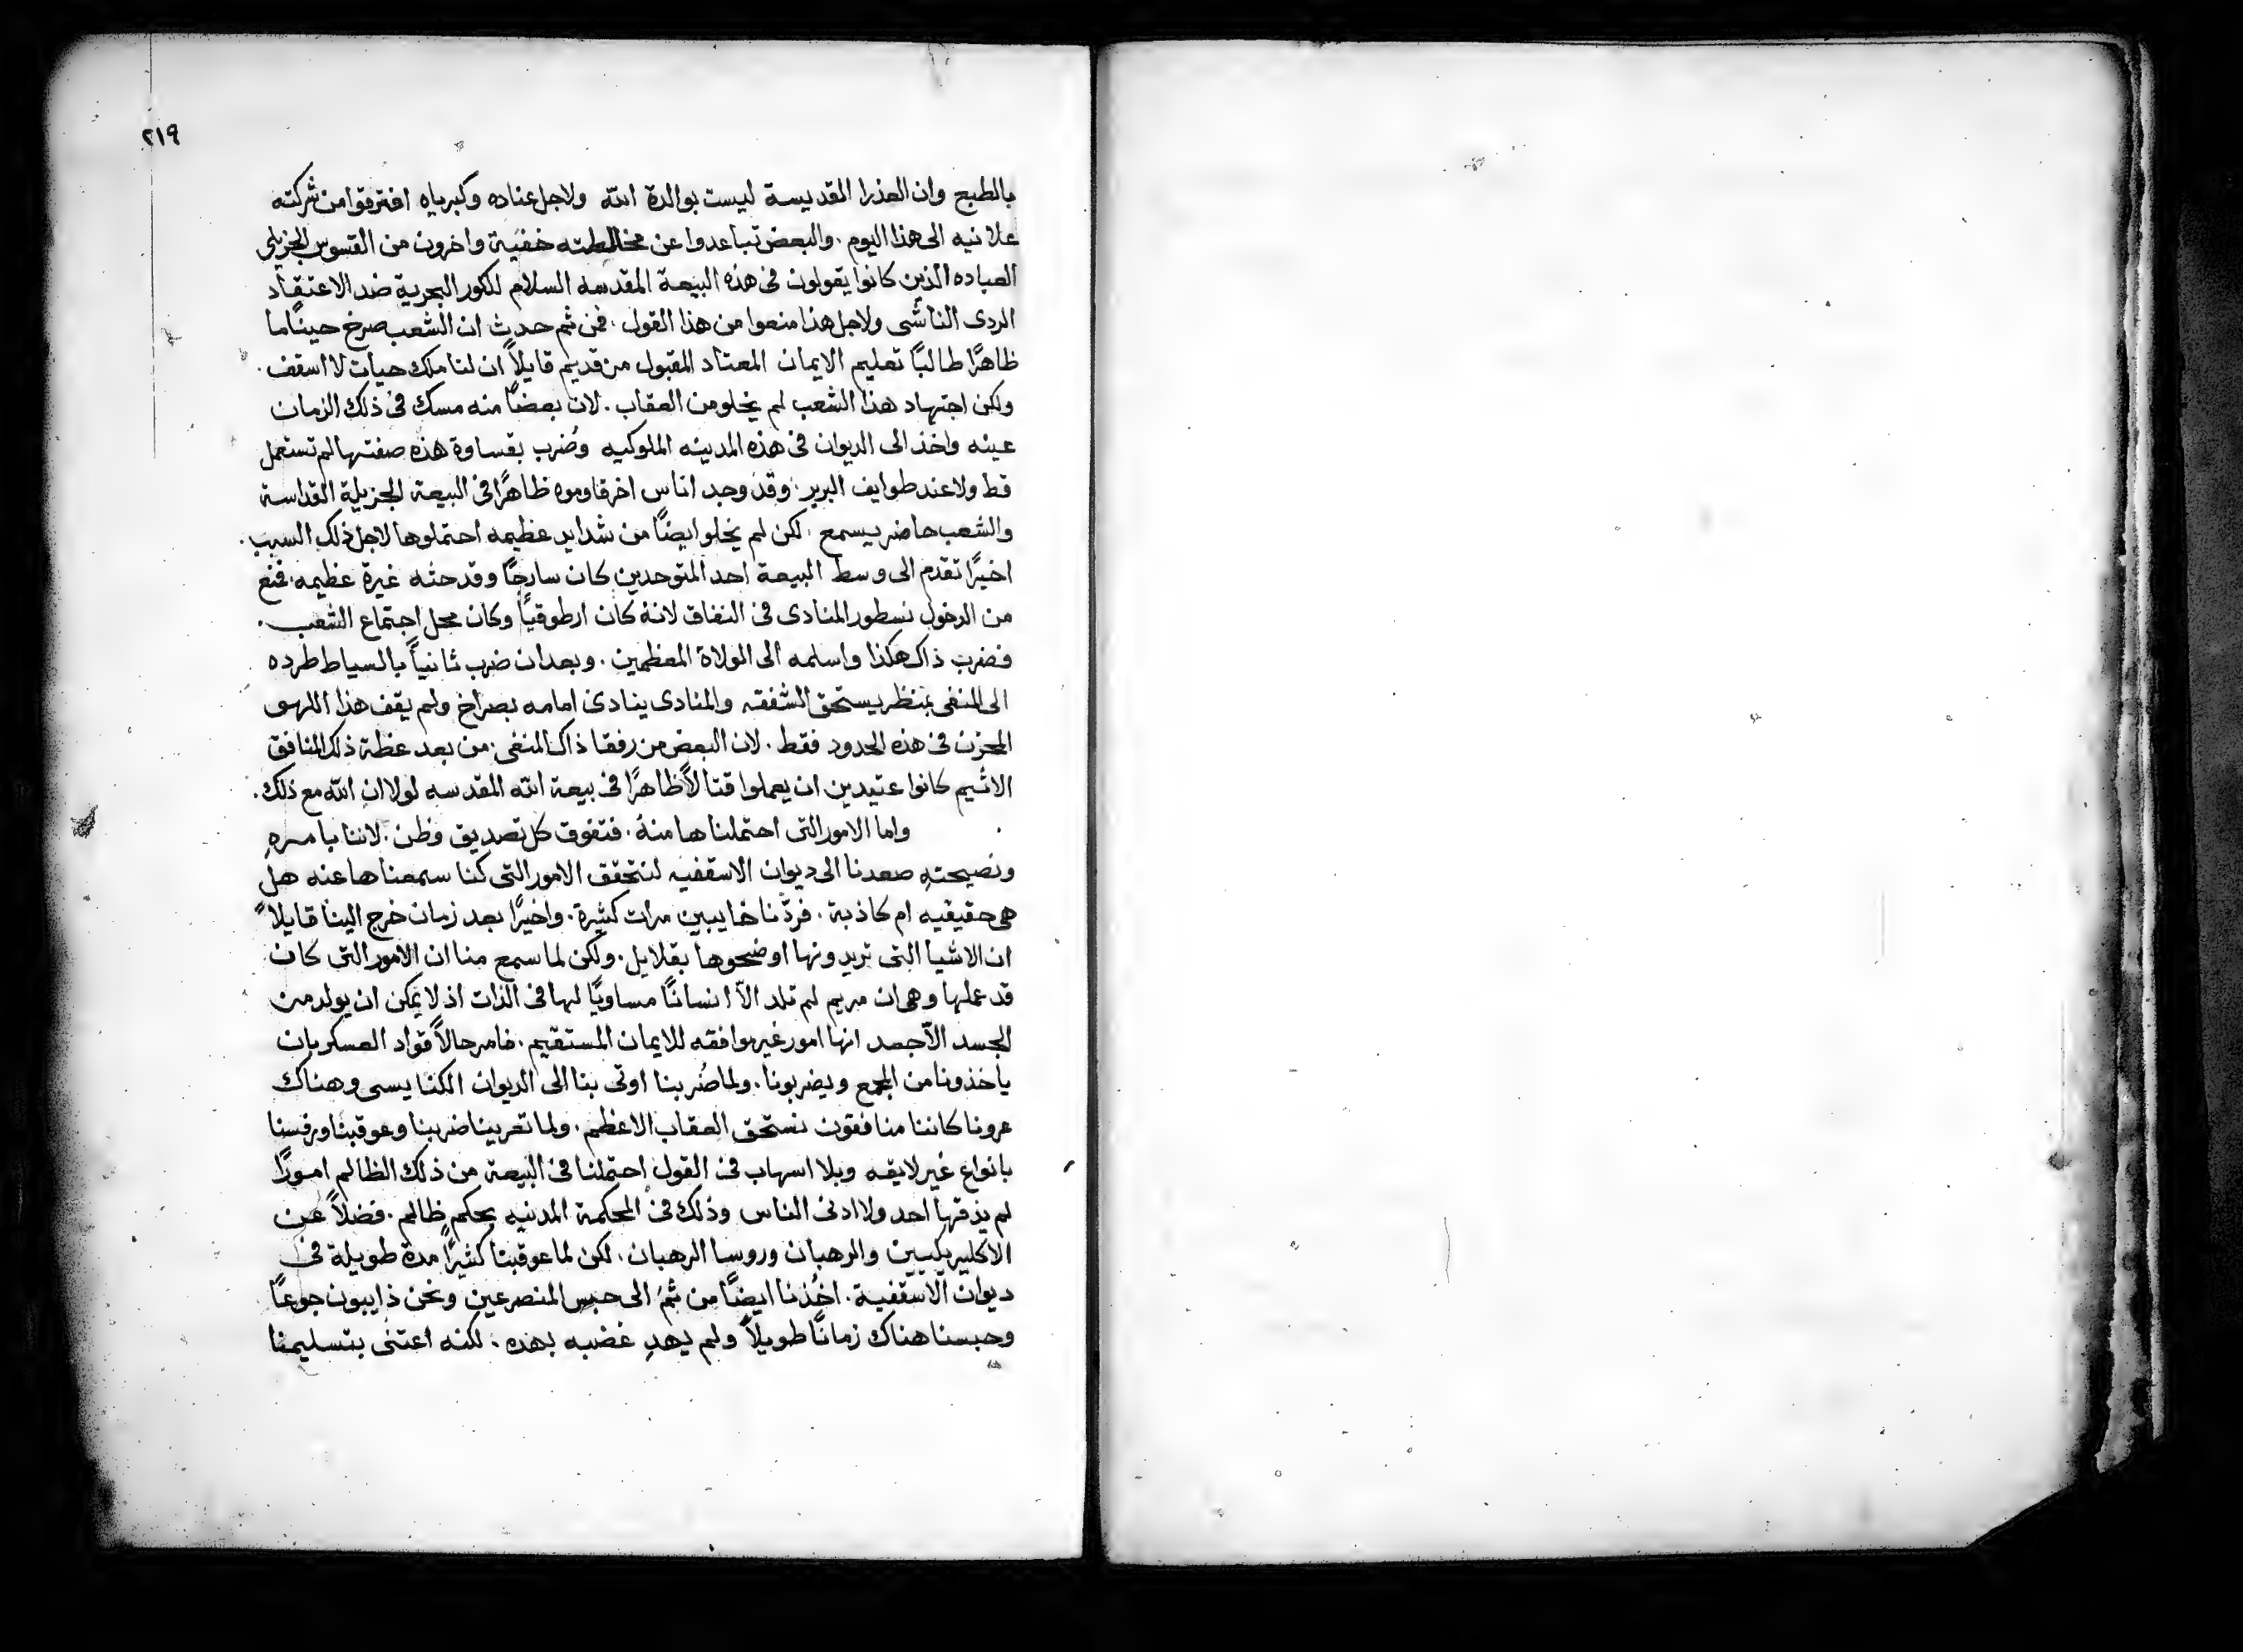 ٢١٩
بالطبع وان العذرا المقديسة ليست بوالدة الله ولاجل عناده وكبرياه افترقوا من شركته
علانيه الى هذا اليوم. والبعض تباعدوا عن مخالطته خفيةً واخرون من القسوس الجزيلى
العباده الذين كانوا يقولون فى هذه البيعة المقدسه السلام للكور البحرية ضد الاعتقاد
الردى الناشى ولاجل هذا منعوا من هذا القول. فمن ثم حدث ان الشعب صرخ حينًا ما
ظاهرًا طالبًا تعليم الايمان المعتاد المقبول من قديم قايلاً ان لنا ملك حيات لا اسقف.
ولكن اجتهاد هذا الشعب لم يخلو من العقاب. لان بعضًا منه مسك فى ذلك الزمان
عينه واخذ الى الديوان فى هذه المدينه الملوكيه وضُرب بقساوة هذه صفتها لم تستعمل
قط ولا عند طوايف البربر. وقد وجد اناس اخر قاوموه ظاهرًا فى البيعة الجزيلة القداسة
والشعب حاضر يسمع. لكن لم يخلو ايضًا من شدايد عظيمه احتملوها لاجل ذلك السبب.
اخيرًا تقدم الى وسط البيعة احد المتوحدين كان سارجًا وقد حثه غيرة عظيمه. فمنع
من الدخول نسطور المنادى فى النفاق لانهُ كان ارطوقيًا وكان محل اجتماع الشعب.
فضرب ذاك هكذا واسلمه الى الولاة المعظمين. وبعد ان ضرب ثانيًا بالسياط طرده
الى المنفى بمنظر يستحق الشفقه والمنادى ينادى امامه بصراخ ولم يقف هذا اللهو
المحزن فى هذه الحدود فقط. لان البعض من رفقا ذاك المنفى من بعد عظة ذلك المنافق
الاثيم كانوا عتيدين ان يعملوا قتالاً ظاهرًا فى بيعة الله المقدسه لولا ان الله مع ذلك.
واما الامور التى احتملناها منهُ. فتفوق كل تصديق وظن. لاننا بامرهِ
ونصيحتهِ صعدنا الى ديوان الاسقفيه لنتحقق الامور التى كنا سمعناها عنه هل
هى حقيقيه ام كاذبة. فردّنا خايبين مرات كثيرة. واخيرًا بعد زمان خرج الينا قايلاً
ان الاشيا التى تريدونها اوضحوها بقلايل. ولكن لما سمع منا ان الامور التى كان
قد عملها وهى ان مريم لم تلد الّا انسانًا مساويًا لها فى الذات اذ لا يمكن ان يولد من
الجسد الّا جسد انها امور غير موافقه للايمان المستقيم. فامر حالاً قواد العسكر بان
ياخذونا من المجمع ويضربونا. ولما ضُربنا اوتى بنا الى الديوان الكنايسى وهناك
عرونا كاننا منافقون نستحق العقاب الاعظم. ولما تعرينا ضربنا وعوقبنا ورفسنا
بانواع غير لايقه وبلا اسهاب فى القول احتملنا فى البيعة من ذلك الظالم امورًا
لم يذقها احد ولا ادنى الناس وذلك فى المحكمة المدنيه بحكم ظالم. فضلاً عن
الاكليريكيين والرهبان وروسا الرهبان. لكن لما عوقبنا كثيرًا مدة طويلة فى
ديوان الاسقفية. اخُذنا ايضًا من ثمُ الى حبس المنصرعين ونحن ذايبون جوعًا
وحبسنا هناك زمانًا طويلاً ولم يهدِ غضبه بهذه. لكنه اعتنى بتسليمنا